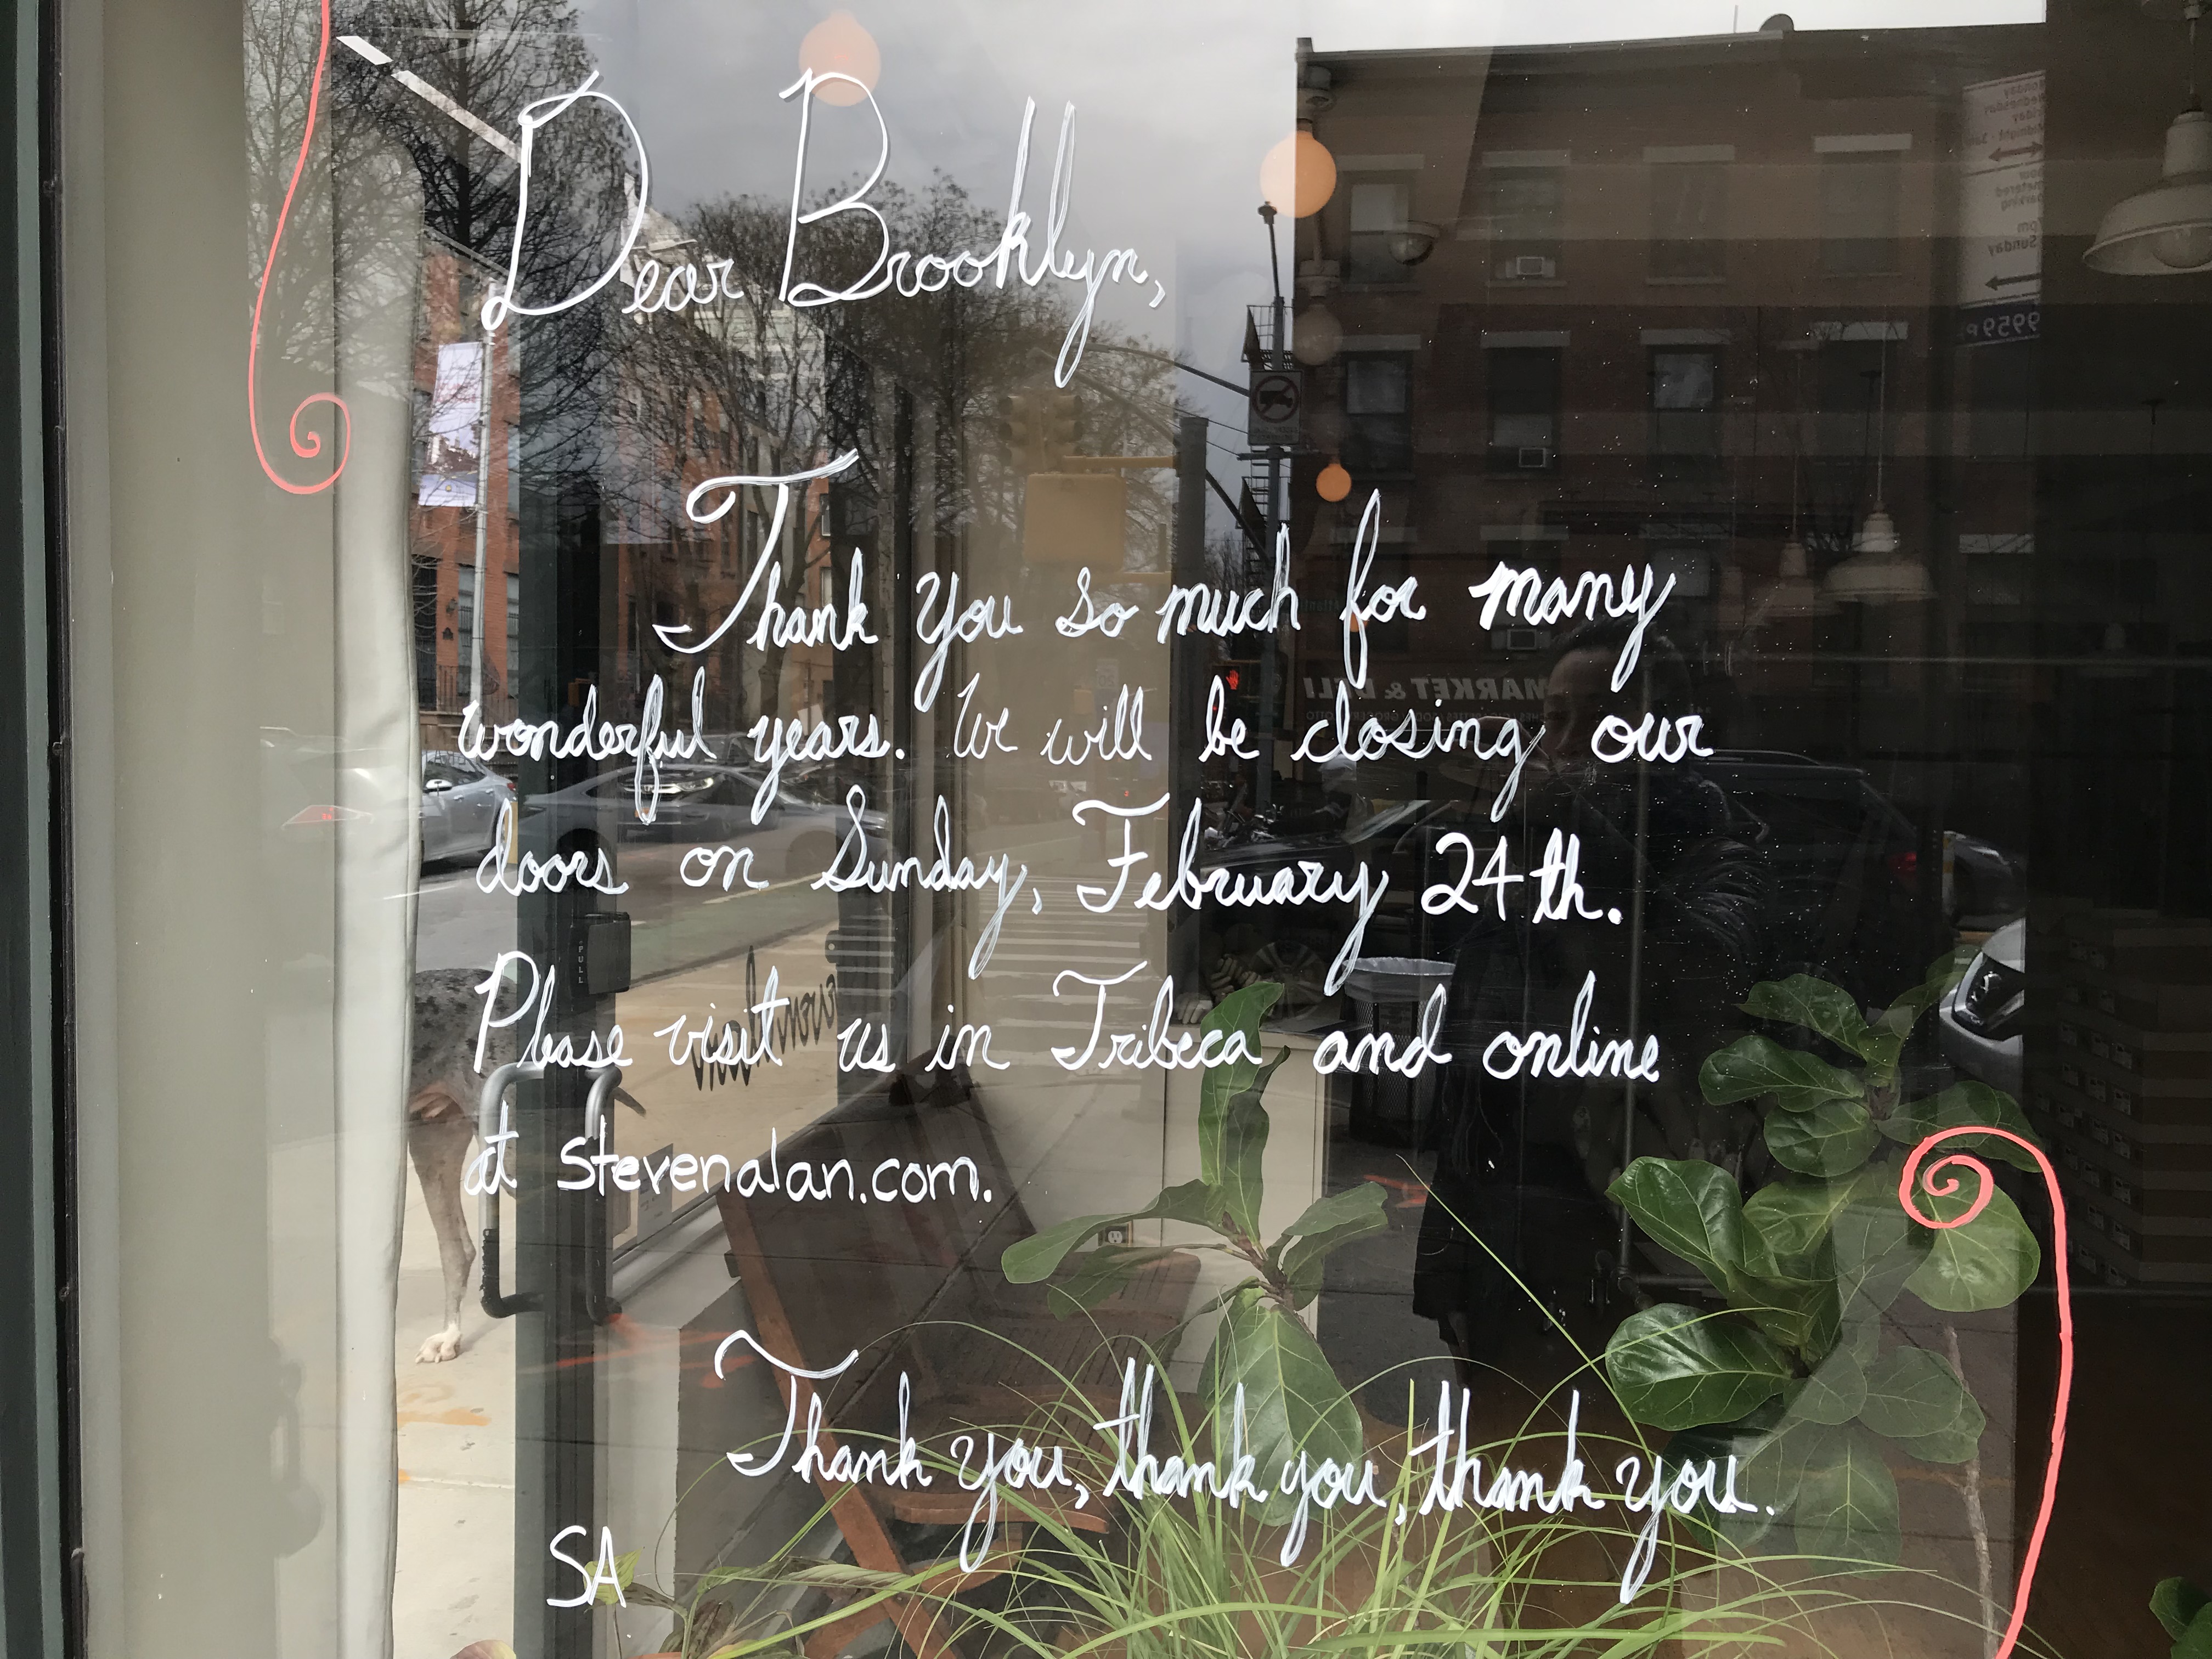 Dear Brooklyn,
Thank you so much for many
wonderful years. We will be closing our
doors on Sunday, February 24th.
Please visit us in Tribeca and online
at stevenalan.com.
Thank you, thank you, thank you.
SA
MARKET & DELI
PULL
Sunday